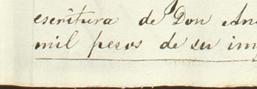 escritura de Don An
mil pesos de su im